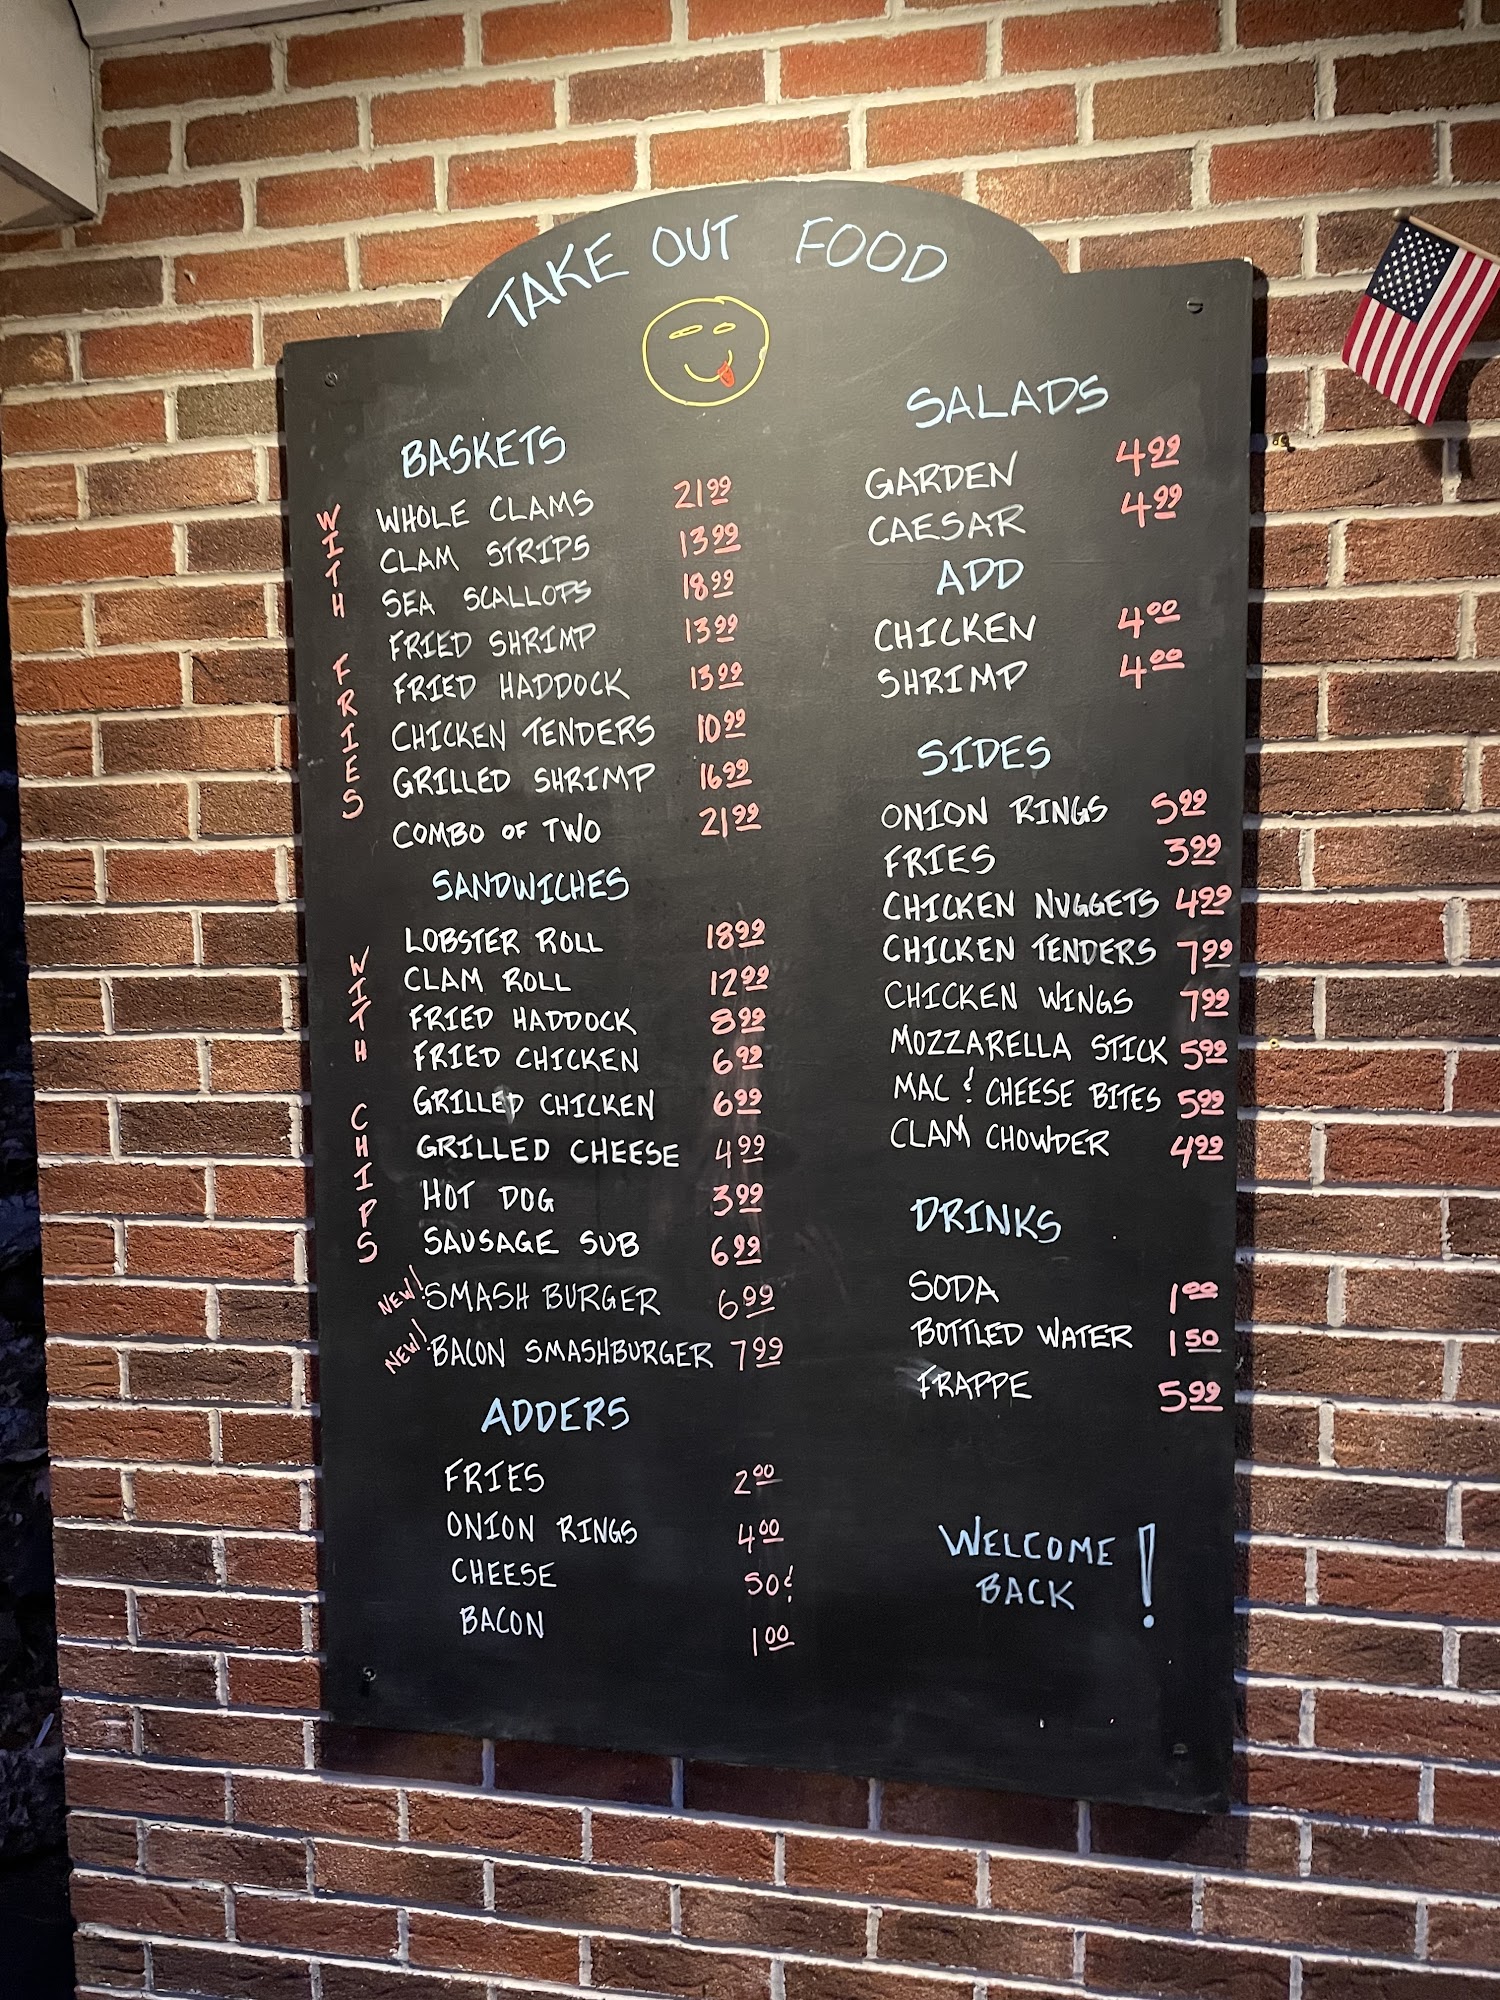 TAKE OUT FOOD
BASKETS
WITH FRIES
WHOLE CLAMS 21 99
CLAM STRIPS 13 99
SEA SCALLOPS 18 99
FRIED SHRIMP 13 99
FRIED HADDOCK 13 99
CHICKEN TENDERS 10 99
GRILLED SHRIMP 16 99
COMBO OF TWO 21 99
SANDWICHES
WITH CHIPS
LOBSTER ROLL 18 99
CLAM ROLL 12 99
FRIED HADDOCK 8 99
FRIED CHICKEN 6 99
GRILLED CHICKEN 6 99
GRILLED CHEESE 4 99
HOT DOG 3 99
SAUSAGE SUB 6 99
NEW! SMASH BURGER 6 99
NEW! BACON SMASHBURGER 7 99
ADDERS
FRIES 2 00
ONION RINGS 4 00
CHEESE 50¢
BACON 1 00
SALADS
GARDEN 4 99
CAESAR 4 99
ADD
CHICKEN 4 00
SHRIMP 4 00
SIDES
ONION RINGS 5 99
FRIES 3 99
CHICKEN NUGGETS 4 99
CHICKEN TENDERS 7 99
CHICKEN WINGS 7 99
MOZZARELLA STICK 5 99
MAC & CHEESE BITES 5 99
CLAM CHOWDER 4 99
DRINKS
SODA 1 00
BOTTLED WATER 1 50
FRAPPE 5 99
WELCOME
BACK !